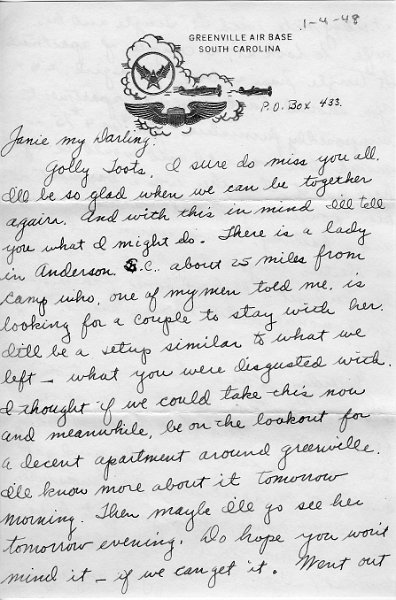 1-4-48
GREENVILLE AIR BASE
SOUTH CAROLINA
P.O. Box 433.
Janie my Darling:
Golly Toots, I sure do miss you all.
I'll be so glad when we can be together
again. And with this in mind I'll tell
you what I might do. There is a lady
in Anderson S.C. about 25 miles from
camp who, one of my men told me, is
looking for a couple to stay with her.
It'll be a setup similar to what we
left - what you were disgusted with.
I thought if we could take this now
and meanwhile, be on the lookout for
a decent apartment around greenville.
I'll know more about it tomorrow
morning. Then maybe I'll go see her
tomorrow evening. Do hope you won't
mind it - if we can get it. Went out